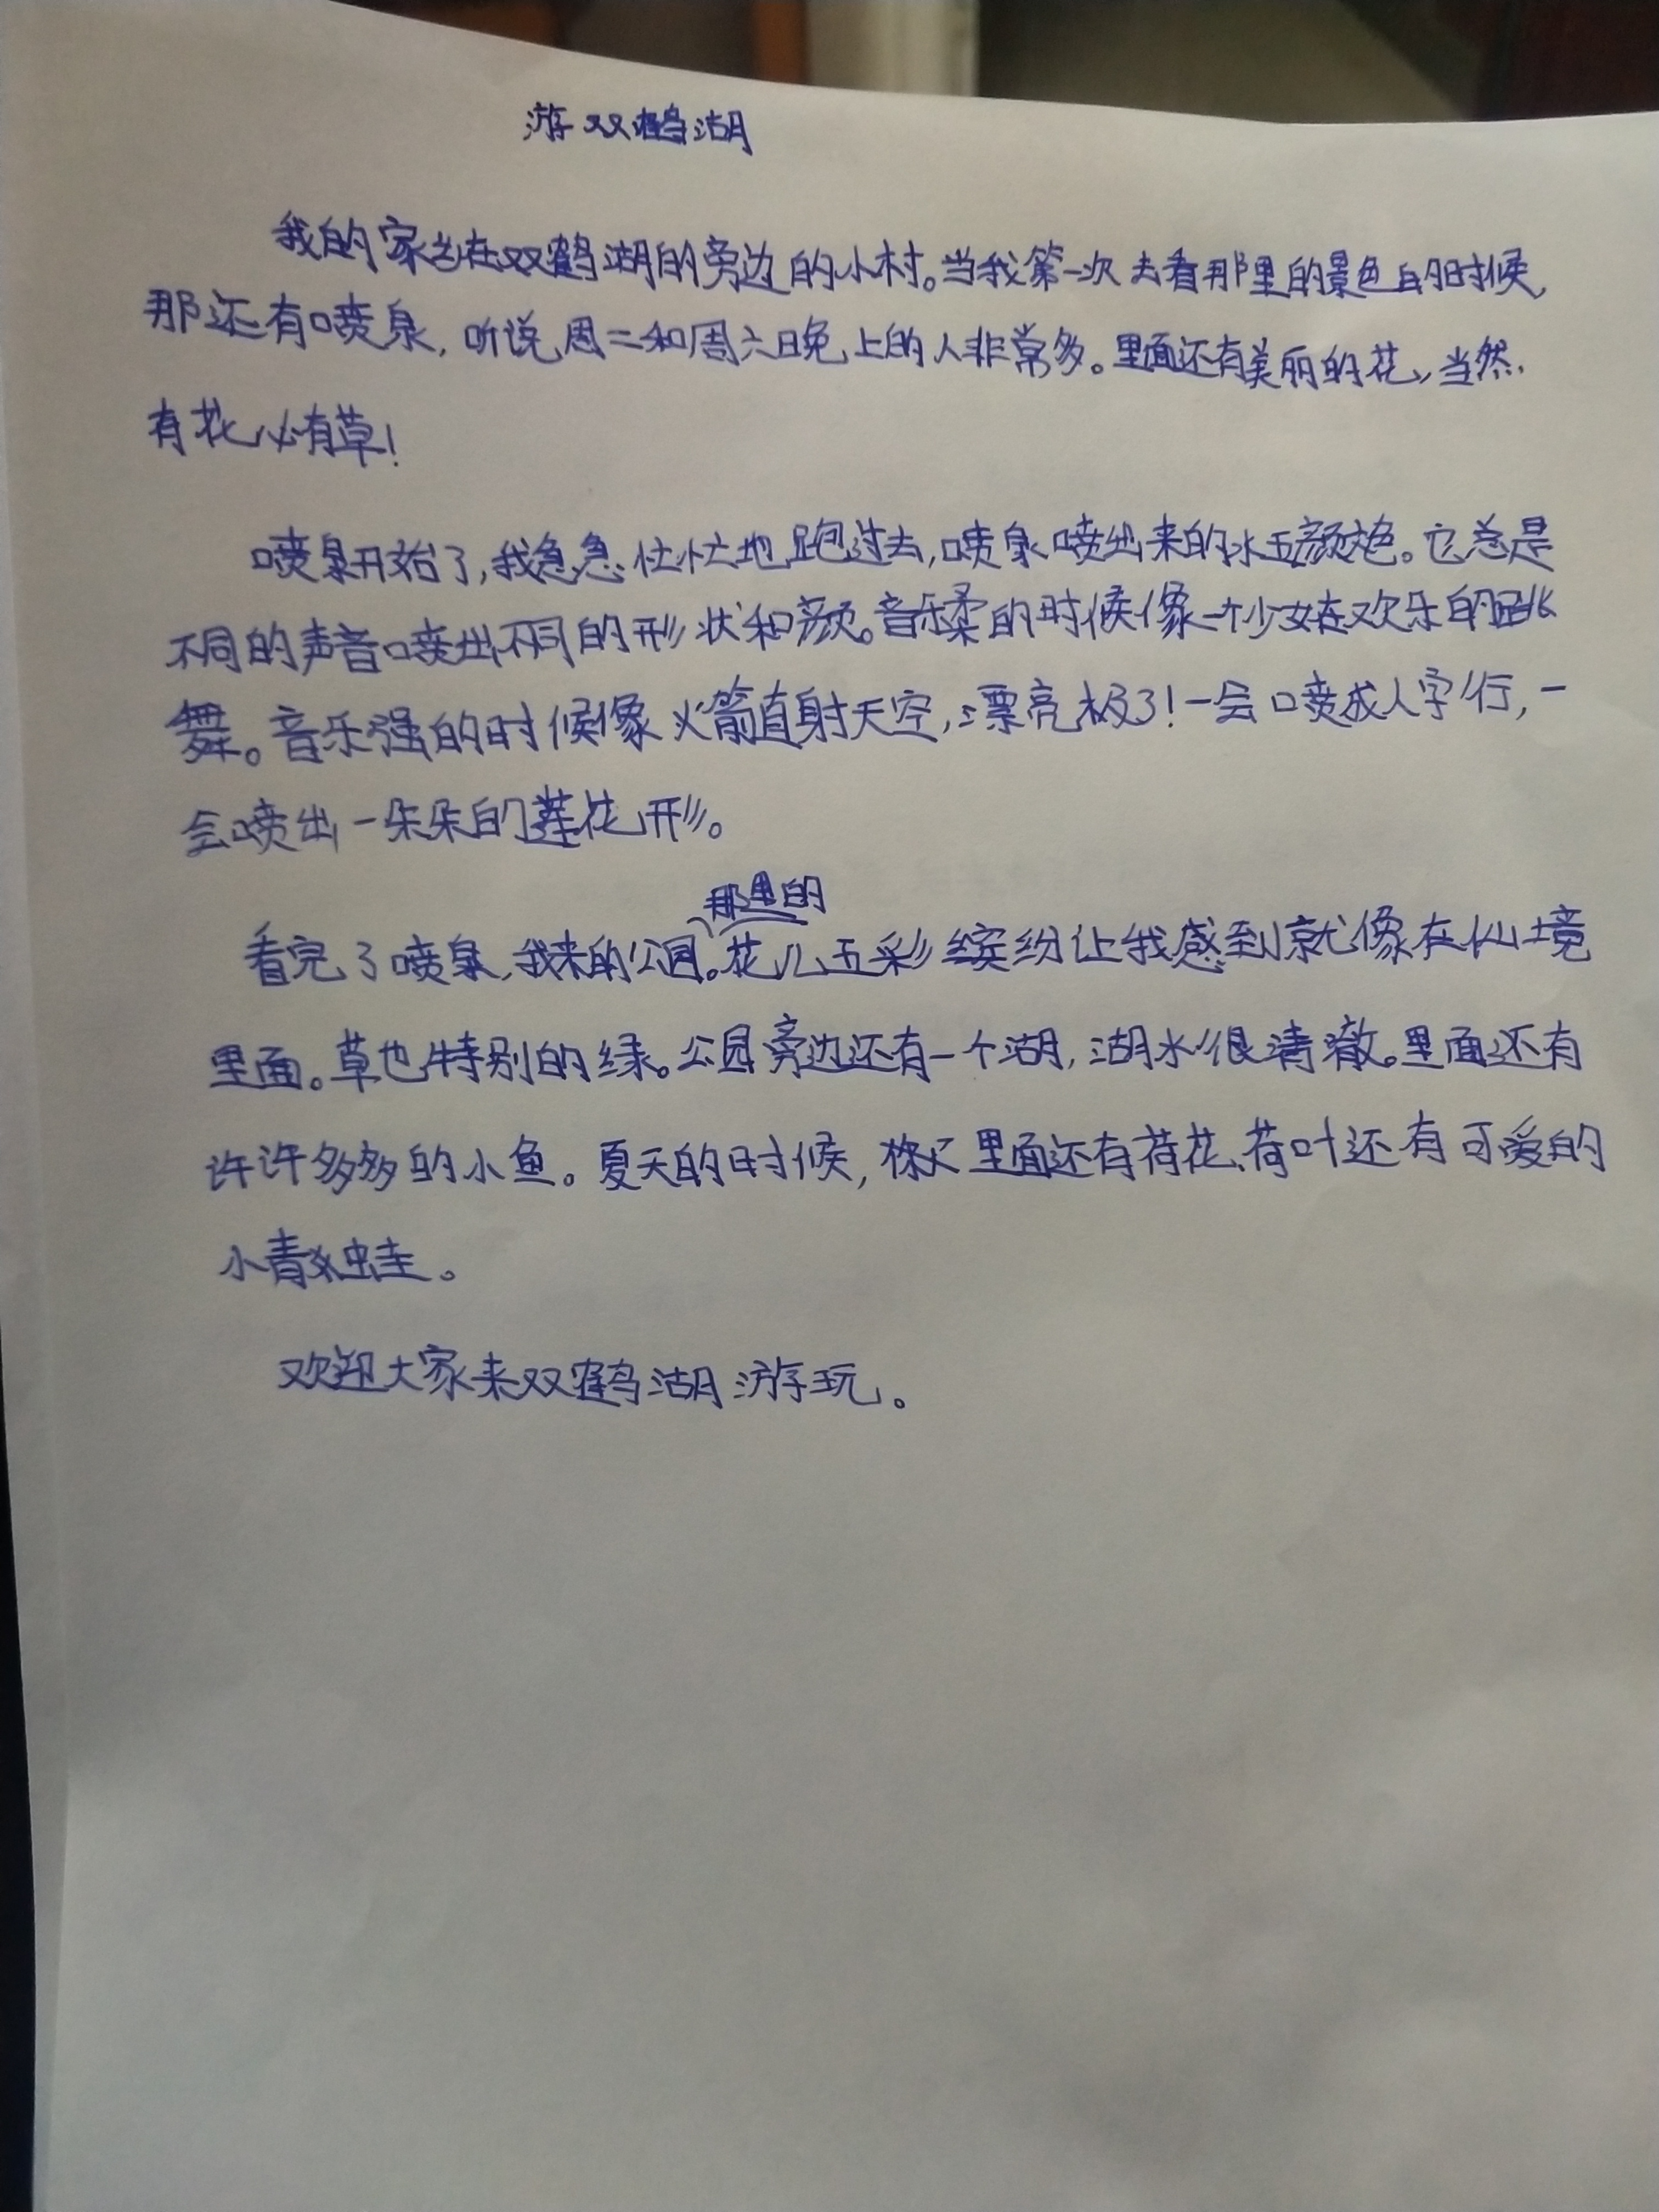 游双鹤湖
我的家在双鹤湖的旁边的小村。当我第一次去看那里的景色的时候,
那还有喷泉,听说周二和周六晚上的人非常多。里面还有美丽的花,当然,
有花必有草!
喷泉开始了,我急急忙忙地跑过去,喷泉喷出来的水五颜六色。它总是
不同的声音喷出不同的形状和颜。音乐柔的时候像一个少女在欢乐的跳
舞。音乐强的时候像火箭直射天空,漂亮极了!一会喷成人字行,一
会喷出一朵朵的莲花形。
那里的
看完了喷泉,我来的公园。花儿五彩缤纷让我感到就像在仙境
里面。草也特别的绿。公园旁边还有一个湖,湖水很清澈。里面还有
许许多多的小鱼。夏天的时候,里面还有荷花、荷叶还有可爱的
小青蛙。
欢迎大家来双鹤湖游玩。